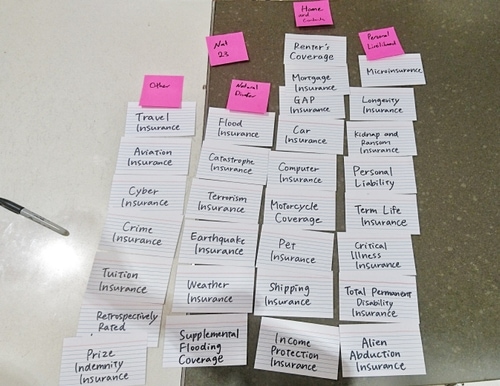 Other
Travel
Insurance
Aviation
Insurance
Cyber
Insurance
Crime
Insurance
Tuition
Insurance
Retrospectively
Rated
Prize
Indemnity
Insurance
Nat
23
Natural
Flood
Insurance
Catastrophe
Insurance
Terrorism
Insurance
Earthquake
Insurance
Weather
Insurance
Supplemental
Flooding
Coverage
Home
and
Renter's
Coverage
Mortgage
Insurance
GAP
Insurance
Car
Insurance
Computer
Insurance
Motorcycle
Coverage
Pet
Insurance
Shipping
Insurance
Income
Protection
Insurance
Personal
Microinsurance
Longevity
Insurance
Kidnap and
Ransom
Insurance
Personal
Liability
Term Life
Insurance
Critical
Illness
Insurance
Total Permanent
Disability
Insurance
Alien
Abduction
Insurance